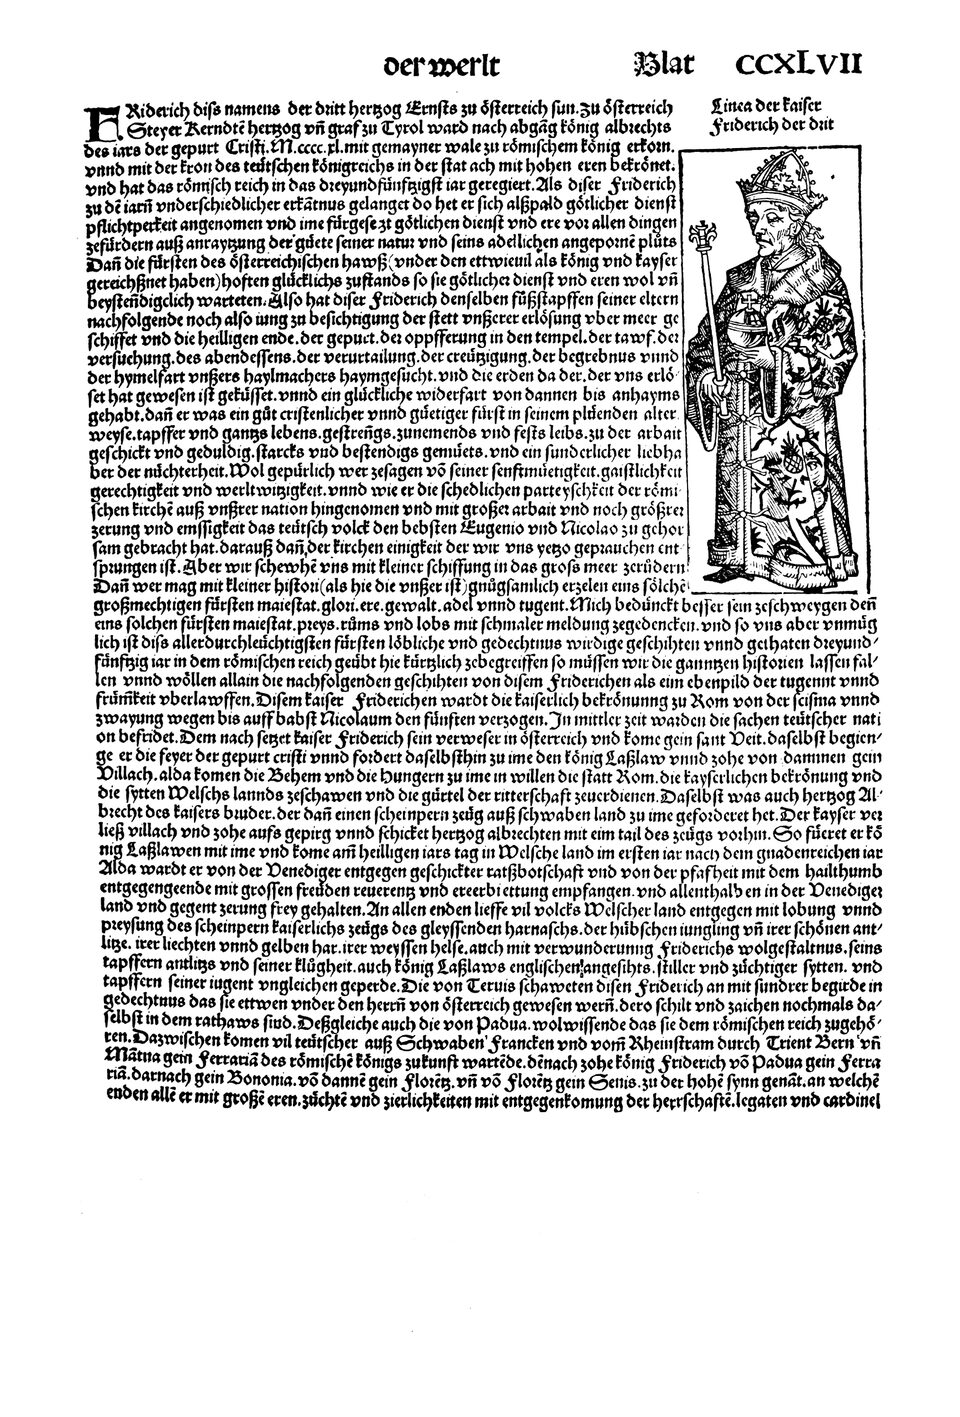 der werlt Blat CCXLVII
Linea der kaiser
Friderich der drit
FRiderich diss namens der dritt hertzog Ernsts zu österreich sun. Zu österreich
Steyer Kerndtē hertzog vn̄ graf zu Tyrol ward nach abgāg könig albrechts
des iars der gepurt Cristi. M.cccc.xl. mit gemayner wale zu römischem könig erkorn.
vnnd mit der kron des teütschen königreichs in der stat ach mit hohen eren bekrönet.
vnd hat das römisch reich in das dreyundfünftzigst iar geregiert. Als diser Friderich
zu dē iarn̄ vnderschiedlicher erkātnus gelanget do het er sich alßpald götlicher dienst
pflichtperkeit angenomen vnd ime fürgesezt götlichen dienst vnd ere vor allen dingen
zefürdern auß anraytzung der güete seiner natur vnd seins adellichen angepornē plůts
Dan̄ die fürsten des österreichischen hawß (vnder den ettwieuil als könig vnd kayser
gereichßnet haben) hoften glücklichs zustands so sie götlicher dienst vnd eren wol vn̄
beystendigclich warteten. Also hat diser Friderich denselben fůßstapffen seiner eltern
nachfolgende noch also iung zu besichtigung der stett vnßerer erlösung vber meer ge
schiffet vnd die heilligen ende. der gepurt. der oppfferung in den tempel. der tawf. der
versuchung. des abendessens. der verurtailung. der creützigung. der begrebnus vnnd
der hymelfart vnßers haylmachers haymgesucht. vnd die erden da der. der vns erlö
set hat gewesen ist geküsset. vnnd ein glückliche widerfart von dannen bis anhayms
gehabt. dan̄ er was ein gůt cristenlicher vnnd güetiger fürst in seinem plüenden alter
weyse. tapffer vnd gantzs lebens. gestren̄gs. zunemends vnd fests leibs. zu der arbait
geschickt vnd geduldig. starcks vnd bestendigs gemüets. vnd ein sunderlicher liebha
ber der nüchterheit. Wol gepürlich wer zesagen vō seiner senftmüetigkeit. gaistlichkeit
gerechtigkeit vnd werltwitzigkeit. vnnd wie er die schedlichen parteyschkeit der römi
schen kirchē auß vnßrer nation hingenomen vnd mit großer arbait vnd noch größrer
zerung vnd emssigkeit das teütsch volck den bebsten Eugenio vnd Nicolao zu gehor
sam gebracht hat. darauß dan̄ der kirchen einigkeit der wir vns yetzo geprauchen ent
sprungen ist. Aber wir schewhē vns mit kleiner schiffung in das gross meer zerüdern
Dan̄ wer mag mit kleiner histori (als hie die vnßer ist) gnůgsamlich erzelen eins sölchē
großmechtigen fürsten maiestat. glori. ere. gewalt. adel vnnd tugent. Mich bedünckt besser sein zeschweygen den̄
eins solchen fürsten maiestat. preys. růms vnd lobs mit schmaler meldung zegedencken. vnd so vns aber vnmüg
lich ist diss allerdurchleüchtigsten fürsten löbliche vnd gedechtnus wirdige geschihten vnnd gethaten dreyund⸗
fünftzig iar in dem römischen reich geübt hie kürtzlich zebegreiffen so müssen wir die ganntzen historien lassen fal⸗
len vnnd wöllen allain die nachfolgenden geschihten von disem Friderichen als eim ebenpild der tugennt vnnd
frümkeit vberlawffen. Disem kaiser Friderichen wardt die kaiserlich bekrönunng zu Rom von der scisma vnnd
zwayung wegen bis auff babst Nicolaum den fünften verzogen. In mittler zeit warden die sachen teütscher nati
on befridet. Dem nach setzet kaiser Friderich sein verweser in österreich vnd kome gein sant Veit. daselbst begien⸗
ge er die feyer der gepurt cristi vnnd fordert daselbsthin zu ime den könig Laßlaw vnnd zohe von dannnen gein
Villach. alda komen die Behem vnd die Hungern zu ime in willen die statt Rom. die kayserlichen bekrönung vnd
die sytten Welschs lannds zeschawen vnd die gürtel der ritterschaft zeuerdienen. Daselbst was auch hertzog Al⸗
brecht des kaisers bruder. der dan̄ einen scheinpern zeüg auß schwaben land zu ime geforderet het. Der kayser ver
ließ villach vnd zohe aufs gepirg vnnd schicket hertzog albrechten mit eim tail des zeügs vorhin. So füeret er kö
nig Laßlawen mit ime vnd kome am̄ heilligen iars tag in Welsche land im ersten iar nach dem gnadenreichen iar
Alda wardt er von der Venediger entgegen geschickter ratßbotschaft vnd von der pfafheit mit dem hailthumb
entgegengeende mit grossen freüden reuerentz vnd ereerbiettung empfangen. vnd allenthalben in der Venediger
land vnd gegent zerung frey gehalten. An allen enden lieffe vil volcks Welscher land entgegen mit lobung vnnd
preysung des scheinpern kaiserlichs zeügs des gleyssenden harnaschs. der hübschen iungling vn̄ irer schönen ant⸗
litze. irer liechten vnnd gelben har. irer weyssen helse. auch mit verwunderunng Friderichs wolgestaltnus. seins
tapffern antlitzs vnd seiner klůgheit. auch könig Laßlaws englischen angesihts. stiller vnd züchtiger sytten. vnd
tapffern seiner iugent vngleichen geperde. Die von Teruis schaweten disen Friderich an mit sundrer begirde in
gedechtnus das sie ettwen vnder den herrn̄ von österreich gewesen wern̄. dero schilt vnd zaichen nochmals da⸗
selbst in dem rathaws sind. Deßgleiche auch die von Padua. wolwissende das sie dem römischen reich zugehö⸗
ren. Dazwischen komen vil teütscher auß Schwaben Francken vnd vom̄ Rheinstram durch Trient Bern vn̄
Mātna gein Ferrariā des römischē königs zukunft wartēde. dēnach zohe könig Friderich vō Padua gein Ferra
riā. darnach gein Bononia. vō dannē gein Florētz. vn̄ vō Florētz gein Senis. zu der hohē synn genāt. an welchē
enden allē er mit großē eren. züchtē vnd zierlichkeiten mit entgegenkomung der herrschaftē. legaten vnd cardinel